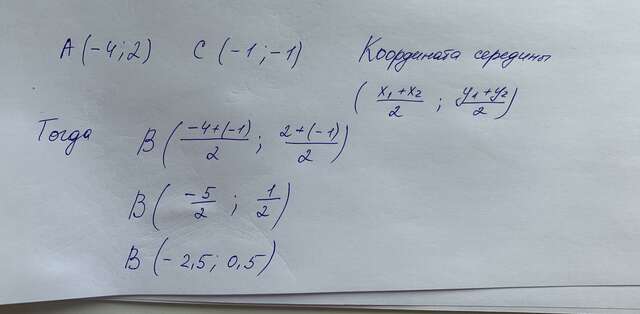 A (-4; 2) C (-1; -1) Координата середины
( (x₁+x₂)/2 ; (y₁+y₂)/2 )
Тогда B ( (-4+(-1))/2 ; (2+(-1))/2 )
B ( -5/2 ; 1/2 )
B (-2,5; 0,5)